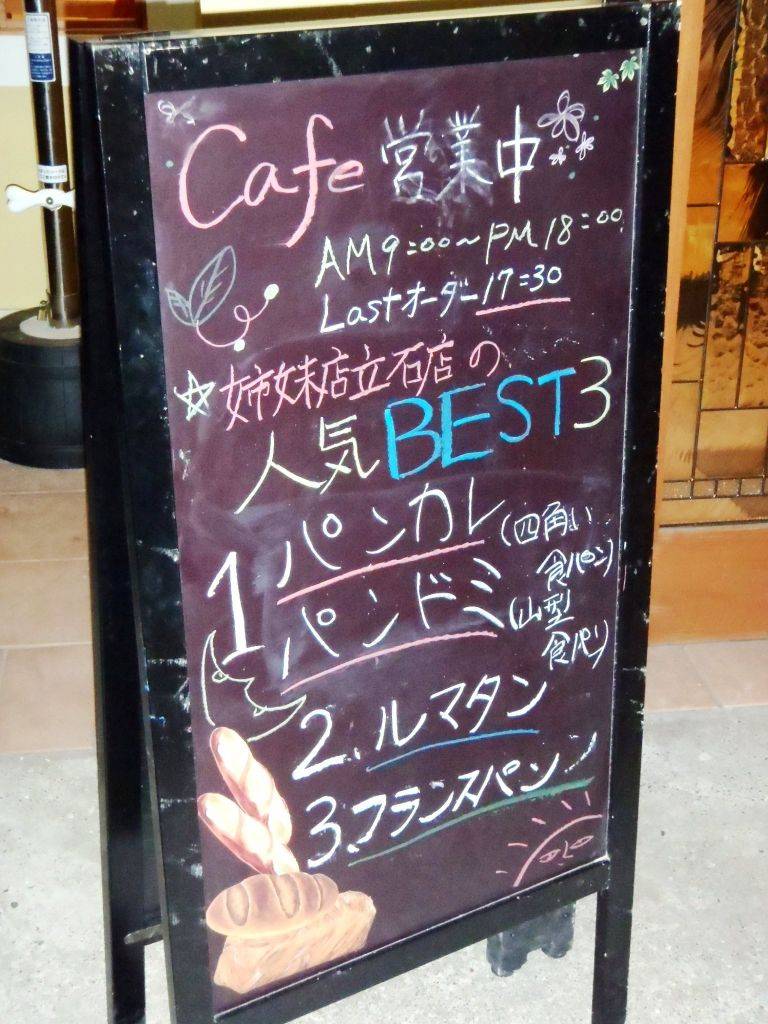 Cafe 営業中
AM9:00～PM18:00
Lastオーダー17:30
☆姉妹店立石店の
人気BEST3
1 パンカレ(四角い
食パン)
パンドミ(山型
食パン)
2.ルマタン
3.フランスパン